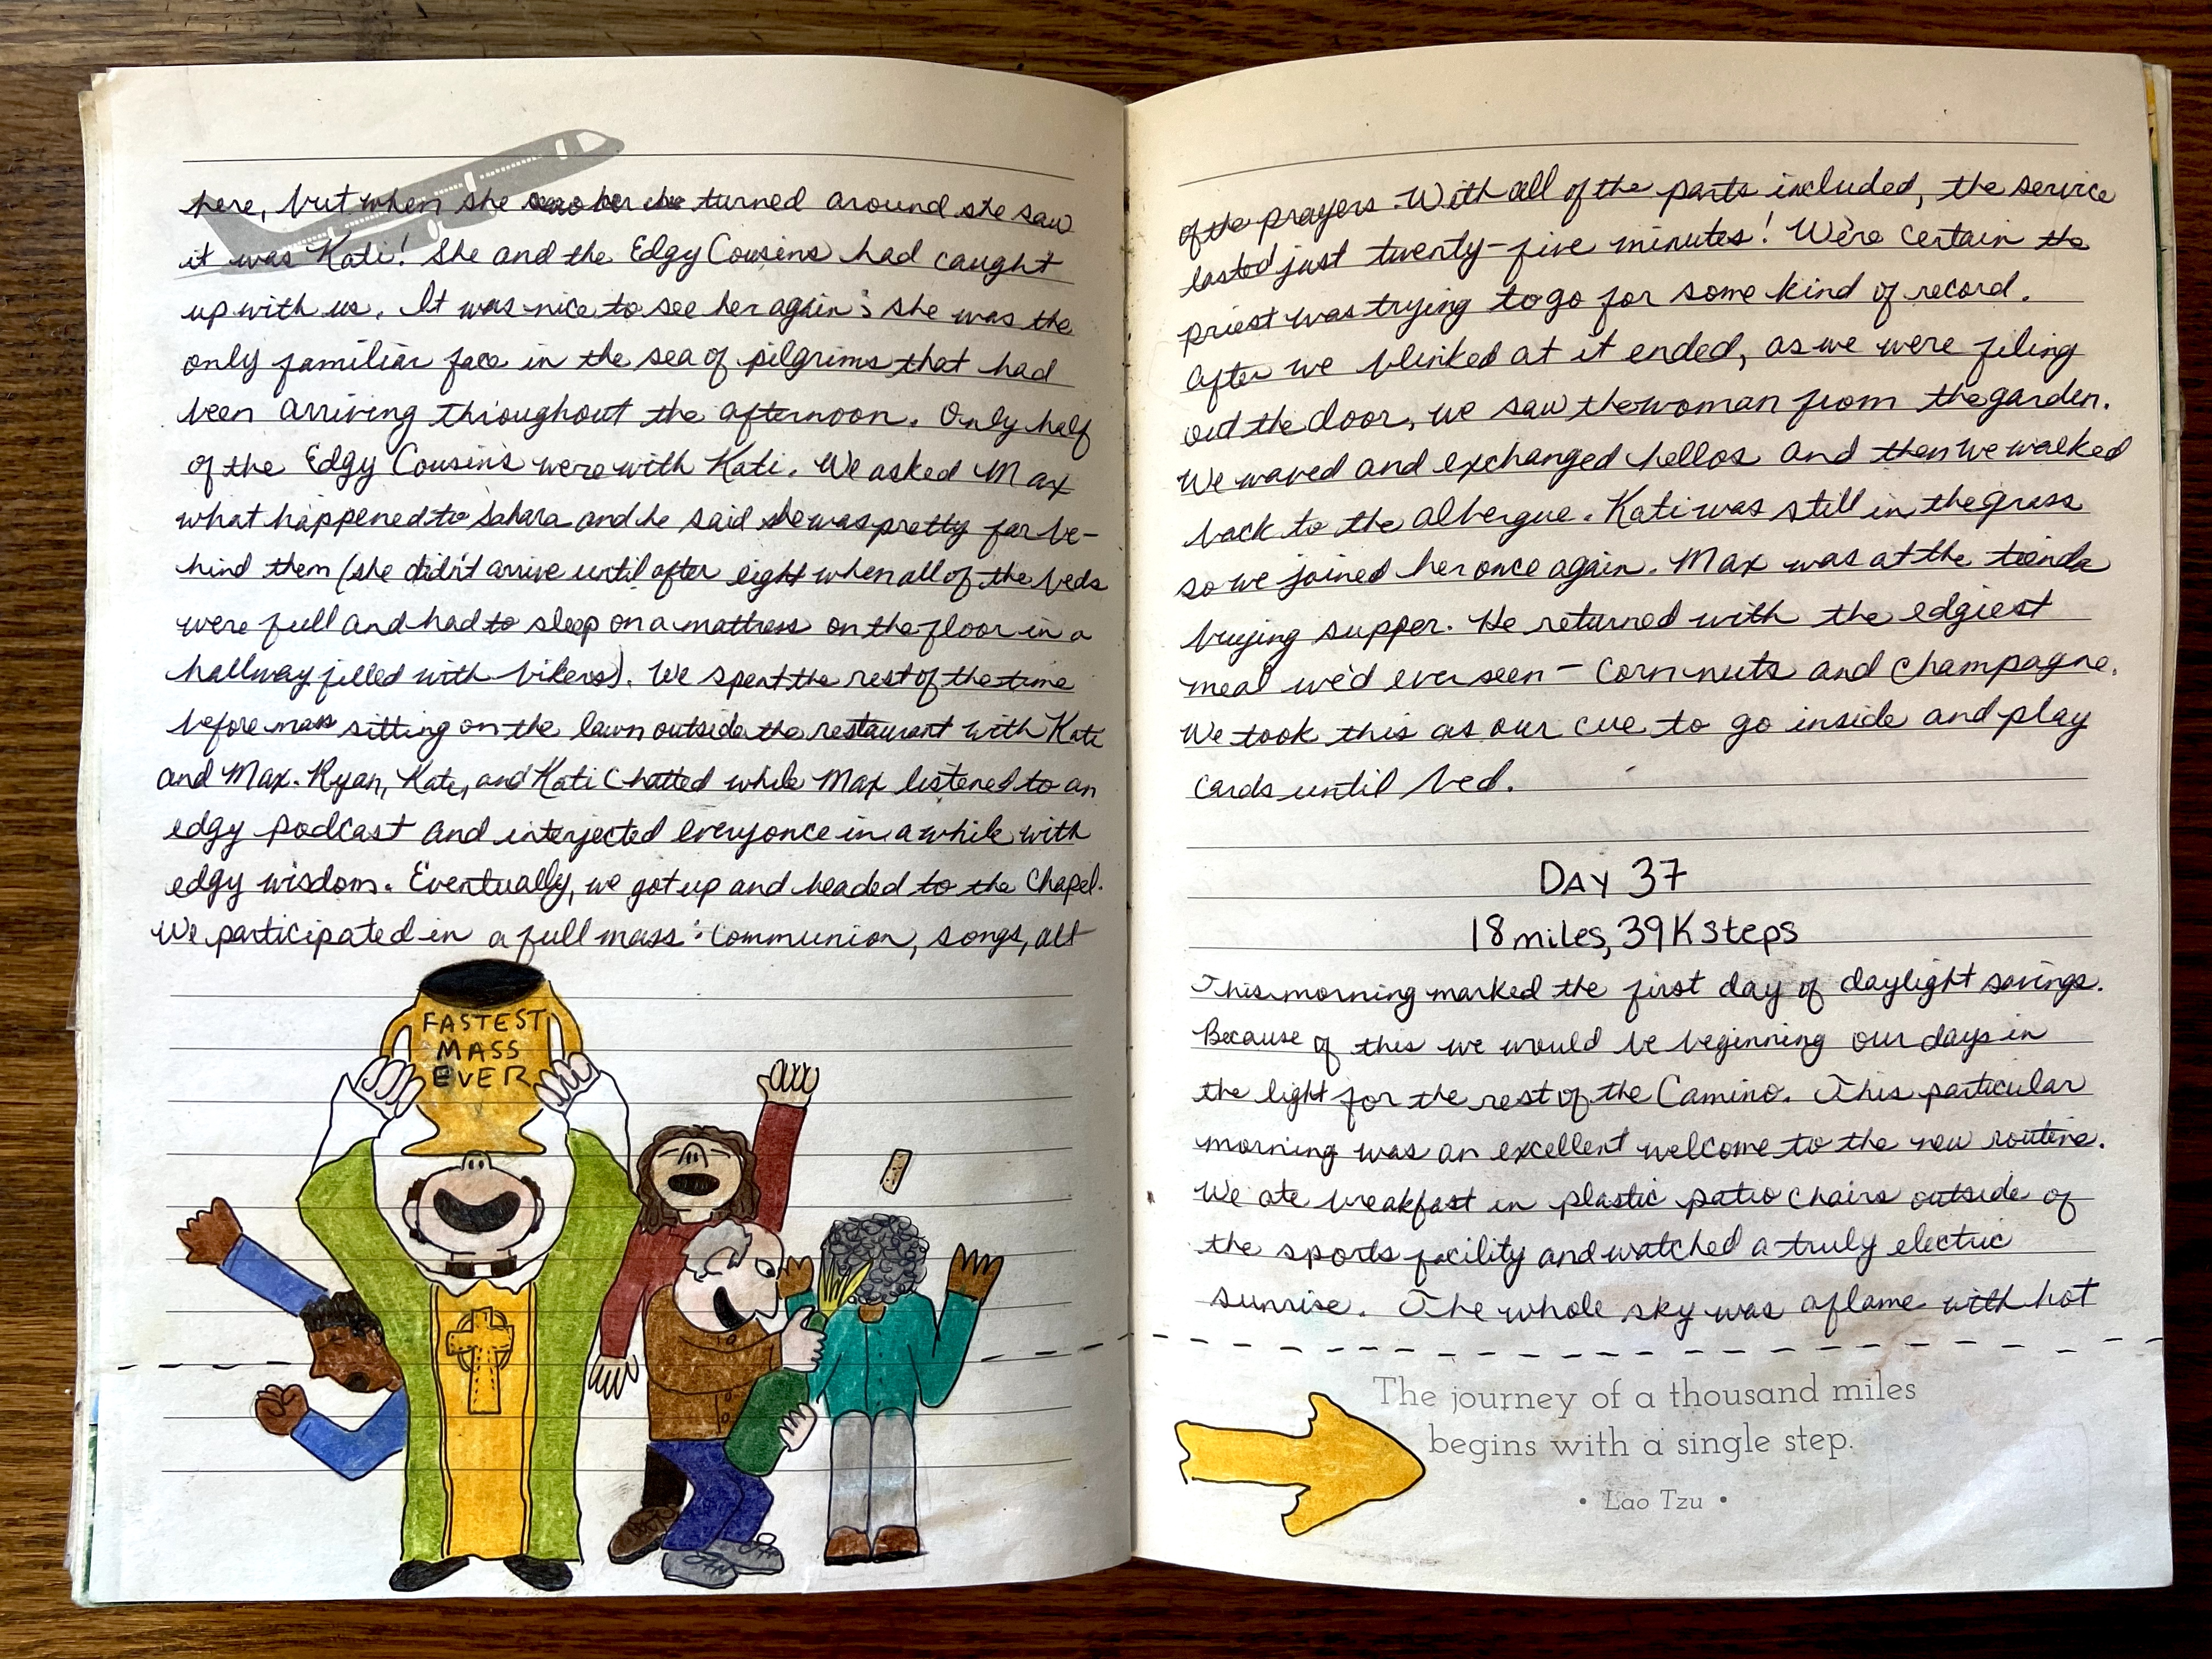 here, but when she turned around she saw
it was Kati! She and the Edgy Cousins had caught
up with us. It was nice to see her again; she was the
only familiar face in the sea of pilgrims that had
been arriving throughout the afternoon. Only half
of the Edgy Cousins were with Kati. We asked Max
what happened to Sahara and he said she was pretty far be-
hind them (she didn't arrive until after eight when all of the beds
were full and had to sleep on a mattress on the floor in a
hallway filled with bikers). We spent the rest of the time
before mass sitting on the lawn outside the restaurant with Kati
and Max. Ryan, Kate, and Kati chatted while Max listened to an
edgy podcast and interjected every once in a while with
edgy wisdom. Eventually, we got up and headed to the chapel.
We participated in a full mass: communion, songs, all
FASTEST
MASS
EVER
of the prayers. With all of the parts included, the service
lasted just twenty-five minutes! We're certain the
priest was trying to go for some kind of record.
After we blinked at it ended, as we were filing
out the door, we saw the woman from the garden.
We waved and exchanged hellos and then we walked
back to the albergue. Kati was still in the grass
so we joined her once again. Max was at the tienda
buying supper. He returned with the edgiest
meal we'd ever seen - corn nuts and champagne.
We took this as our cue to go inside and play
cards until bed.
DAY 37
18 miles, 39K steps
This morning marked the first day of daylight savings.
Because of this we would be beginning our days in
the light for the rest of the Camino. This particular
morning was an excellent welcome to the new routine.
We ate breakfast in plastic patio chairs outside of
the sports facility and watched a truly electric
sunrise. The whole sky was aflame with hot
The journey of a thousand miles
begins with a single step.
• Lao Tzu •